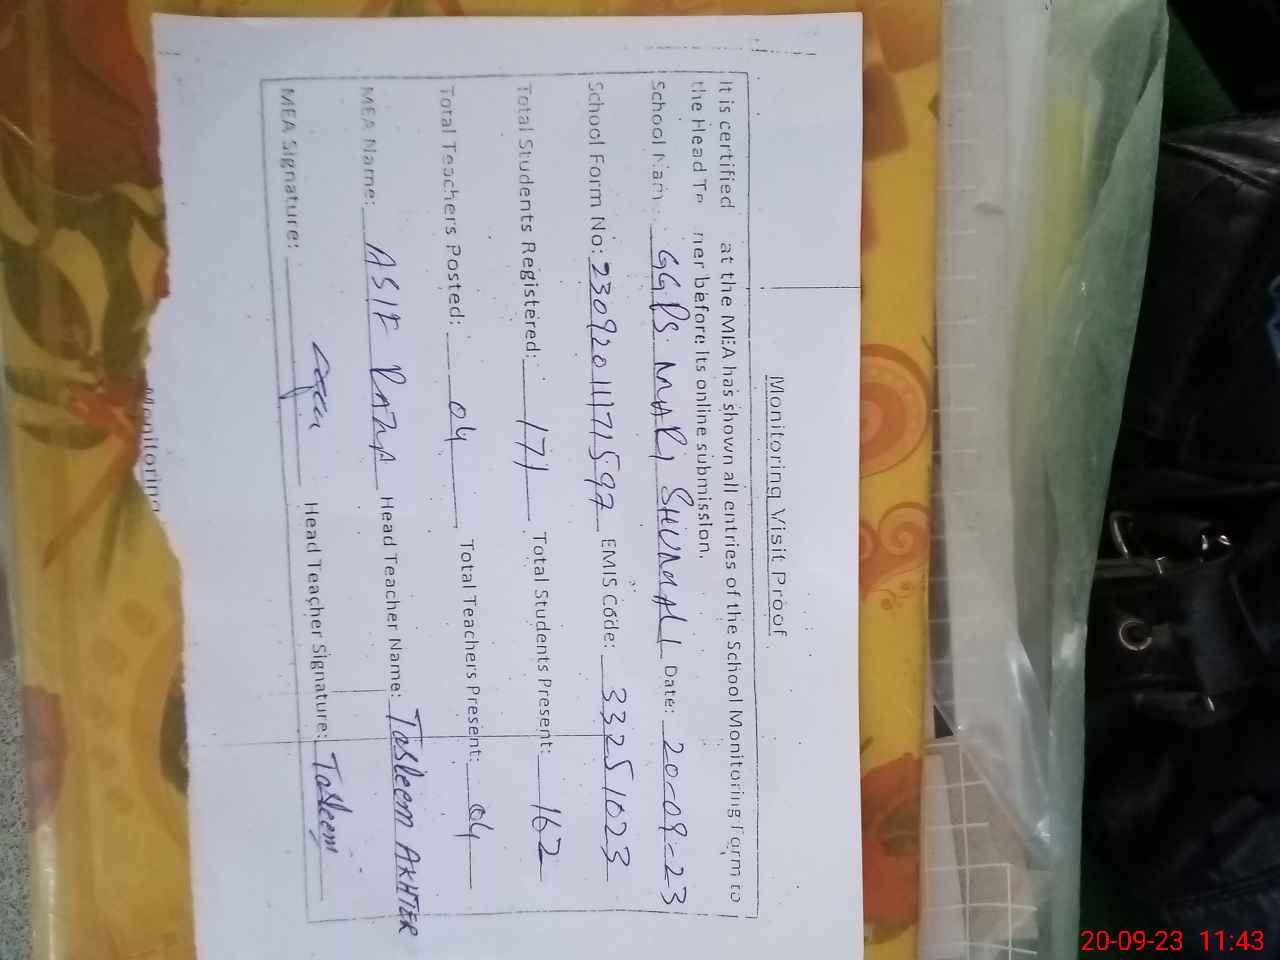 Monitoring Visit Proof
It is certified at the MEA has shown all entries of the School Monitoring Form to
the Head Te ner before its online submission.
School Nam: GGPS. MARI SHUMALI Date: 20-09-23
School Form No: 2309201171597 EMIS code: 33251023
Total Students Registered: 171 Total Students Present: 162
Total Teachers Posted: 04 Total Teachers Present: 04
MEA Name: ASIF RAZA Head Teacher Name: Tasleem AKHTER
MEA Signature: Head Teacher Signature: Tasleem
Monitoring
20-09-23 11:43